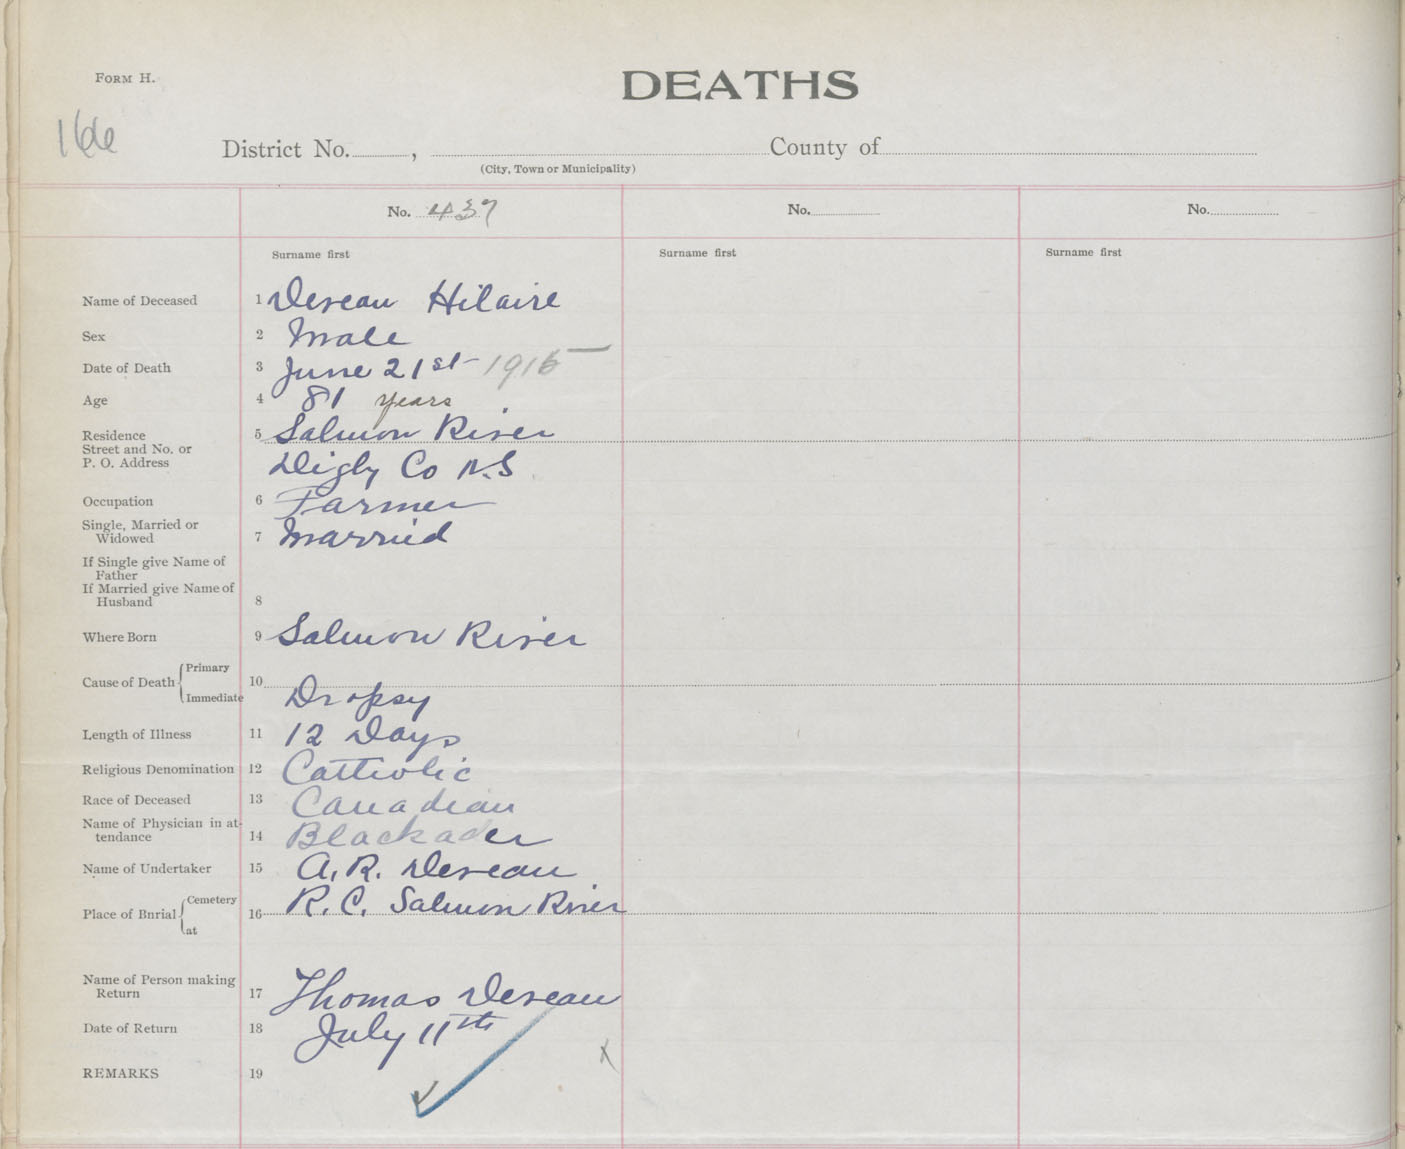 FORM H.
DEATHS
166
District No. , County of
(City, Town or Municipality)
No. 437
No.
No.
Surname first
Surname first
Surname first
Name of Deceased 1 Deveau Hilaire
Sex 2 Male
Date of Death 3 June 21st 1915
Age 4 81 years
Residence 5 Salmon River
Street and No. or
P. O. Address Digby Co N.S
Occupation 6 Farmer
Single, Married or
Widowed 7 Married
If Single give Name of
Father
If Married give Name of
Husband 8
Where Born 9 Salmon River
Cause of Death Primary 10
Immediate Dropsy
Length of Illness 11 12 Days
Religious Denomination 12 Catholic
Race of Deceased 13 Canadian
Name of Physician in at-
tendance 14 Blackader
Name of Undertaker 15 A. R. Deveau
Place of Burial Cemetery 16 R. C. Salmon River
at
Name of Person making
Return 17 Thomas Deveau
Date of Return 18 July 11th
REMARKS 19